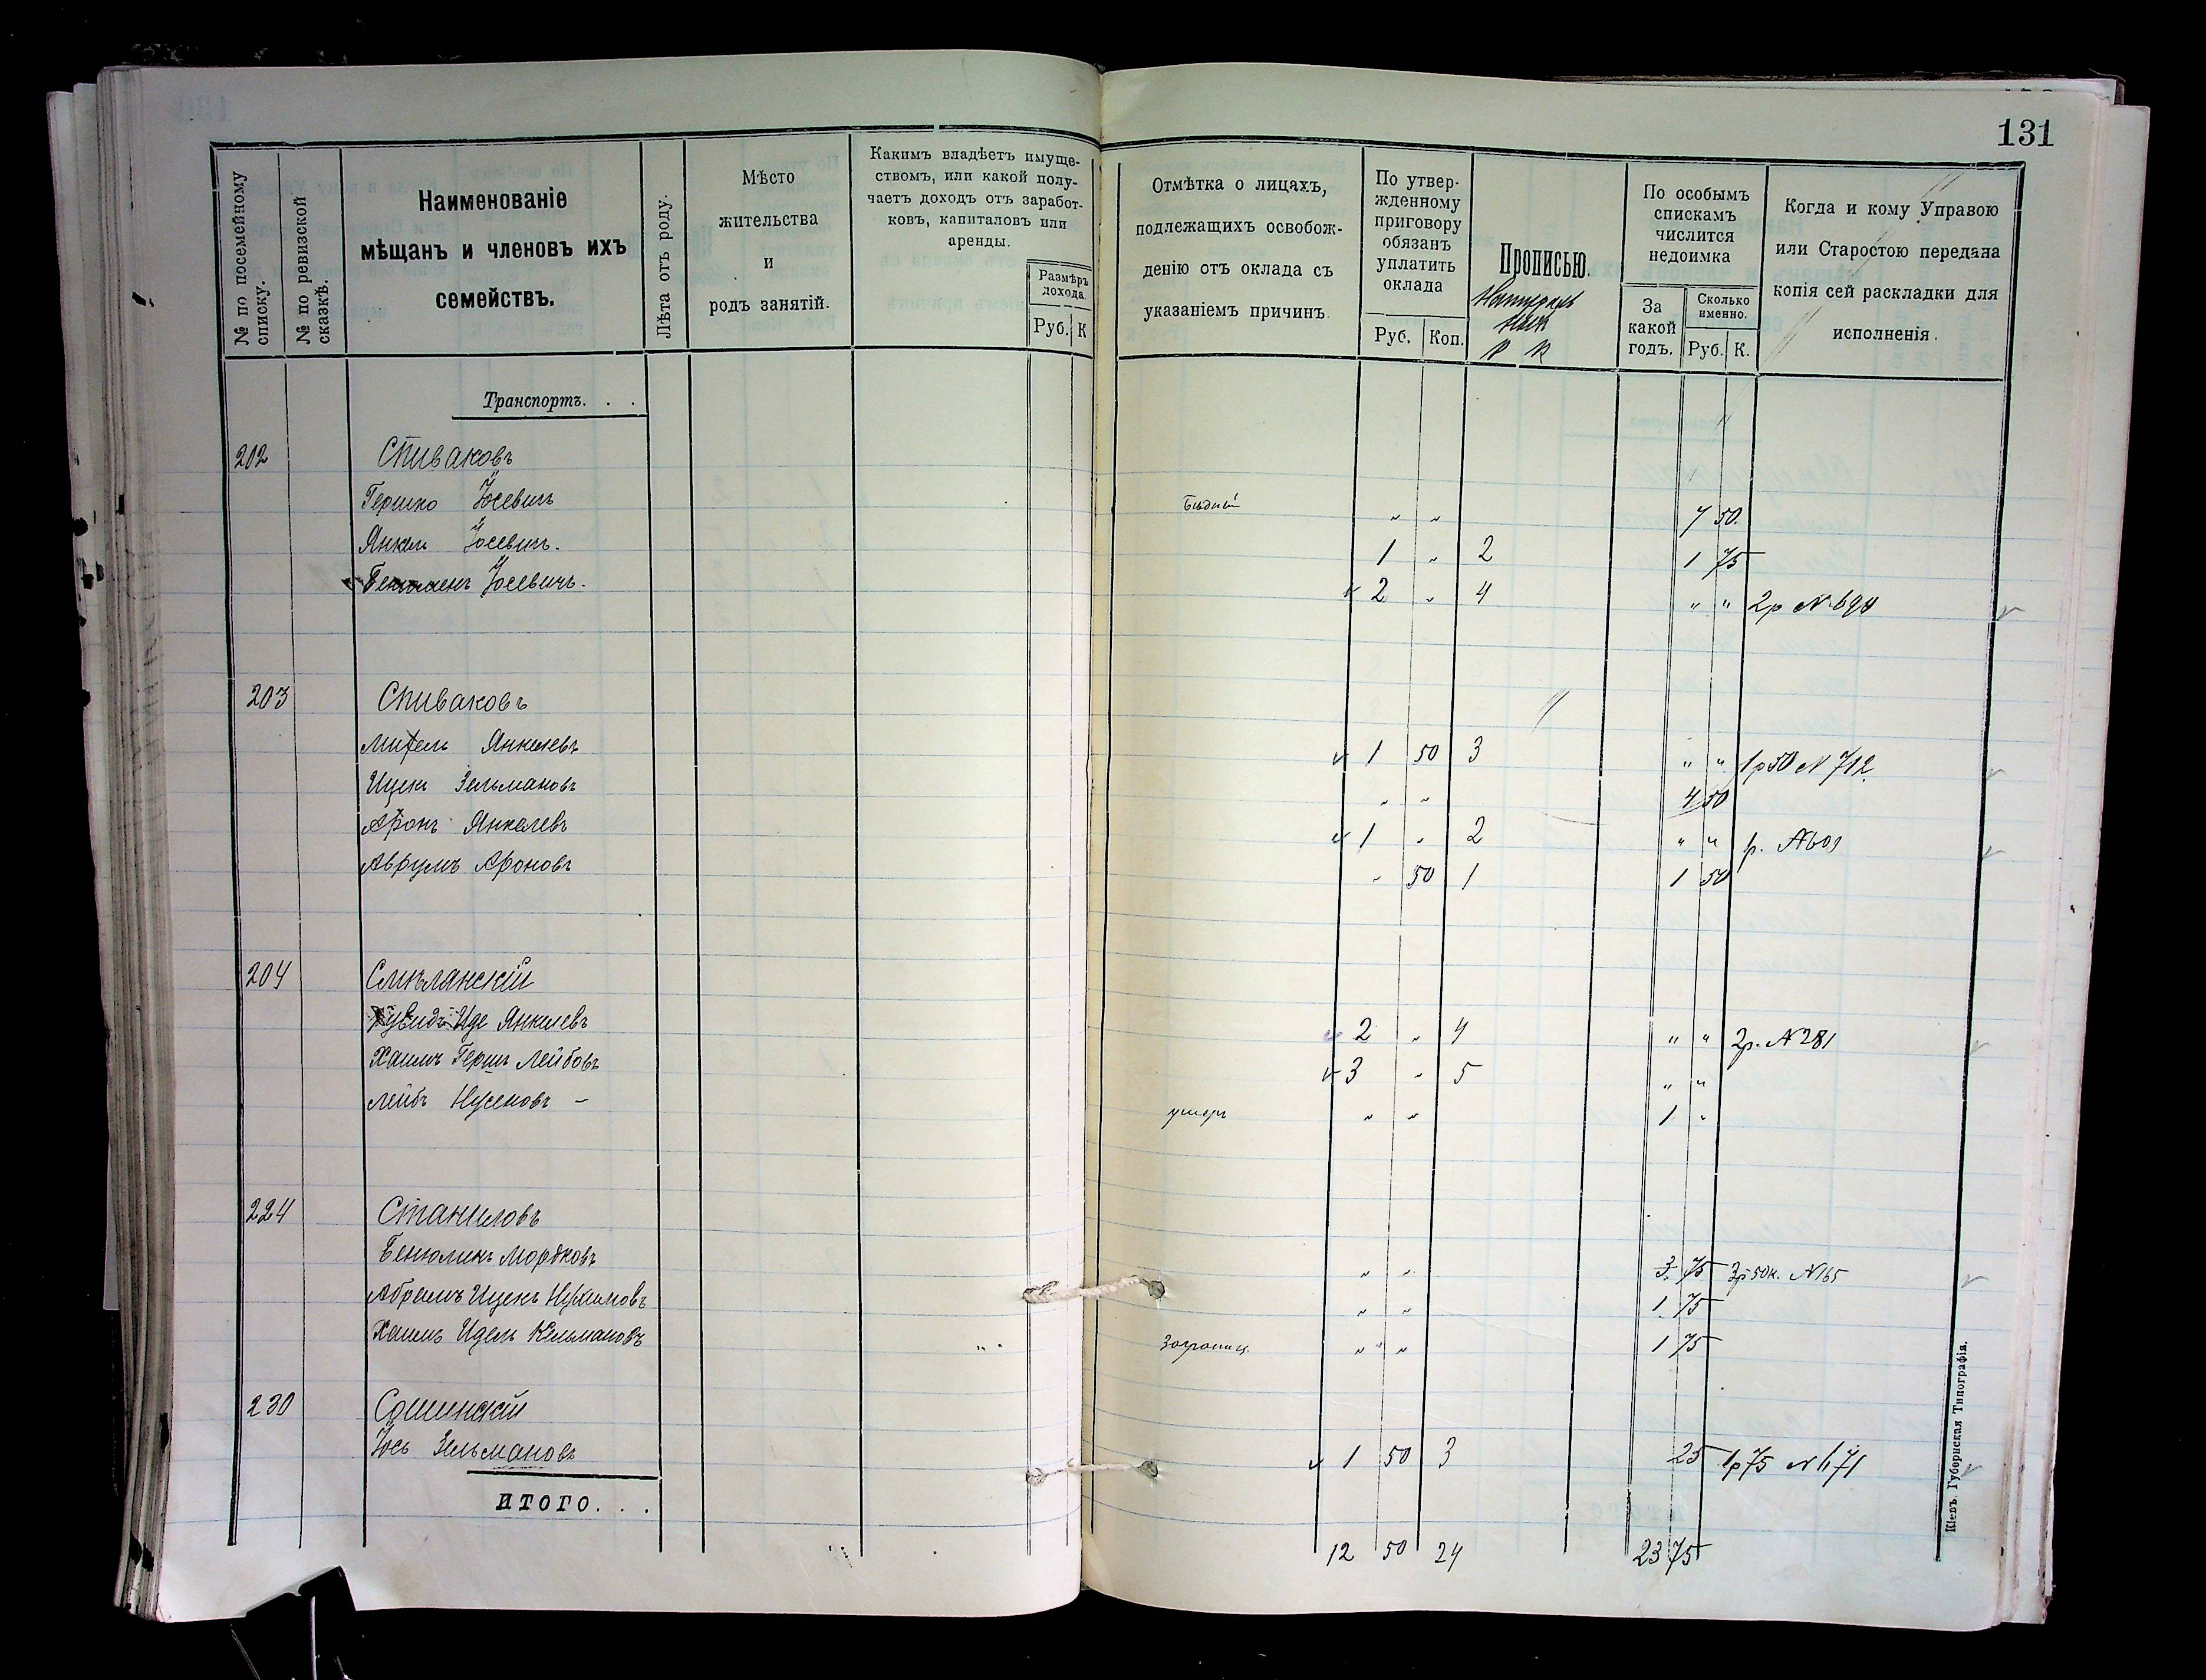 131
№ по посемейному списку.
№ по ревизской сказкѣ.
Наименованіе
мѣщанъ и членовъ ихъ
семействъ.
Лѣта отъ роду.
Мѣсто
жительства
и
родъ занятій.
Какимъ владѣетъ имуще-
ствомъ, или какой полу-
чаетъ доходъ отъ заработ-
ковъ, капиталовъ или
аренды.
Размѣръ
дохода.
Руб. К
Отмѣтка о лицахъ,
подлежащихъ освобож-
денію отъ оклада съ
указаніемъ причинъ
По утвер-
жденному
приговору
обязанъ
уплатить
оклада
Руб. Коп.
Прописью.
Р К
По особымъ
спискамъ
числится
недоимка
За
какой
годъ.
Сколько
именно.
Руб. К.
Когда и кому Управою
или Старостою передана
копія сей раскладки для
исполненія.
Транспортъ. . .
202 Спиваковъ
Гершко Іосевичъ Бѣдный " " 7 50.
Янкель Іосевичъ. 1 " 2 1 75
Іосевичъ. 2 " 4 " " 2р №690
203 Спиваковъ
Янкелевъ 1 50 3 " " 1р50 № 712
Ицекъ Зельмановъ " " 4 50
Аронъ Янкелевъ 1 " 2 " " р.
Аврумъ Ароновъ " 50 1 1 50
204 Смѣлянскій
Янкелевъ 2 " 4 " " 2р. №281
Хаимъ Гершъ Лейбовъ 3 " 5 " "
Лейбъ Нусеновъ – умеръ " " 1 "
224 Станиловъ
Бенюминъ Мордковъ " " 3 75 3р50к. №165
Абрамъ Ицекъ " " 1 75
Хаимъ Идель Кельмановъ " " Заграниц. " " " 1 75
230 Сошинскій
Іось Зельмановъ 1 50 3 25 1р75 №1671
ИТОГО. . .
12 50 24 23 75
Кіевъ. Губернская Типографія.